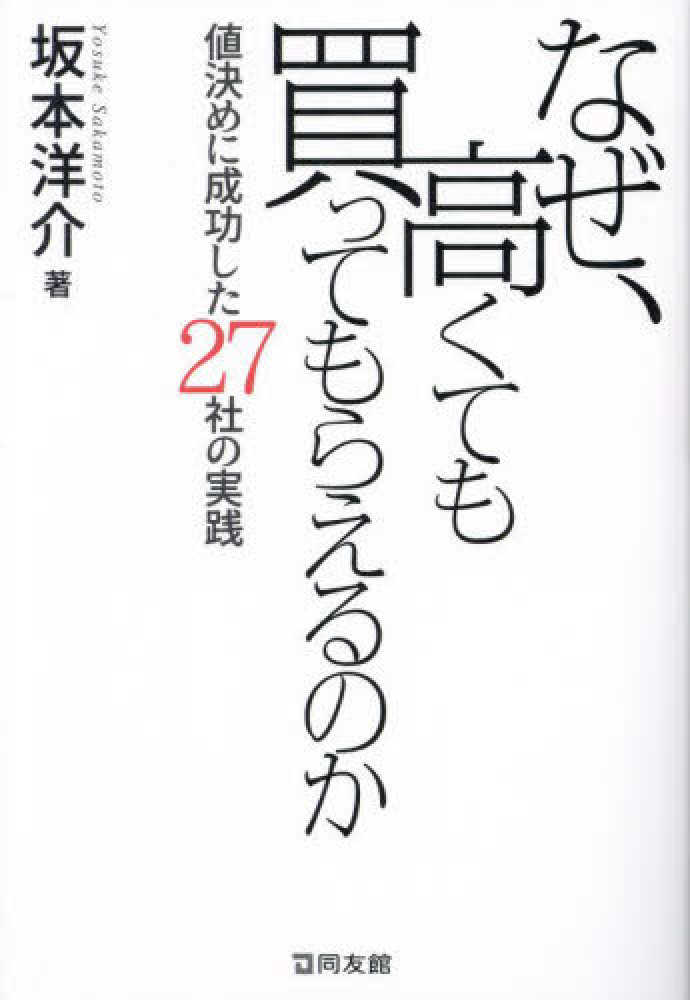 なぜ、
高くても
買ってもらえるのか
値決めに成功した27社の実践
Yosuke Sakamoto
坂本洋介 著
同友館